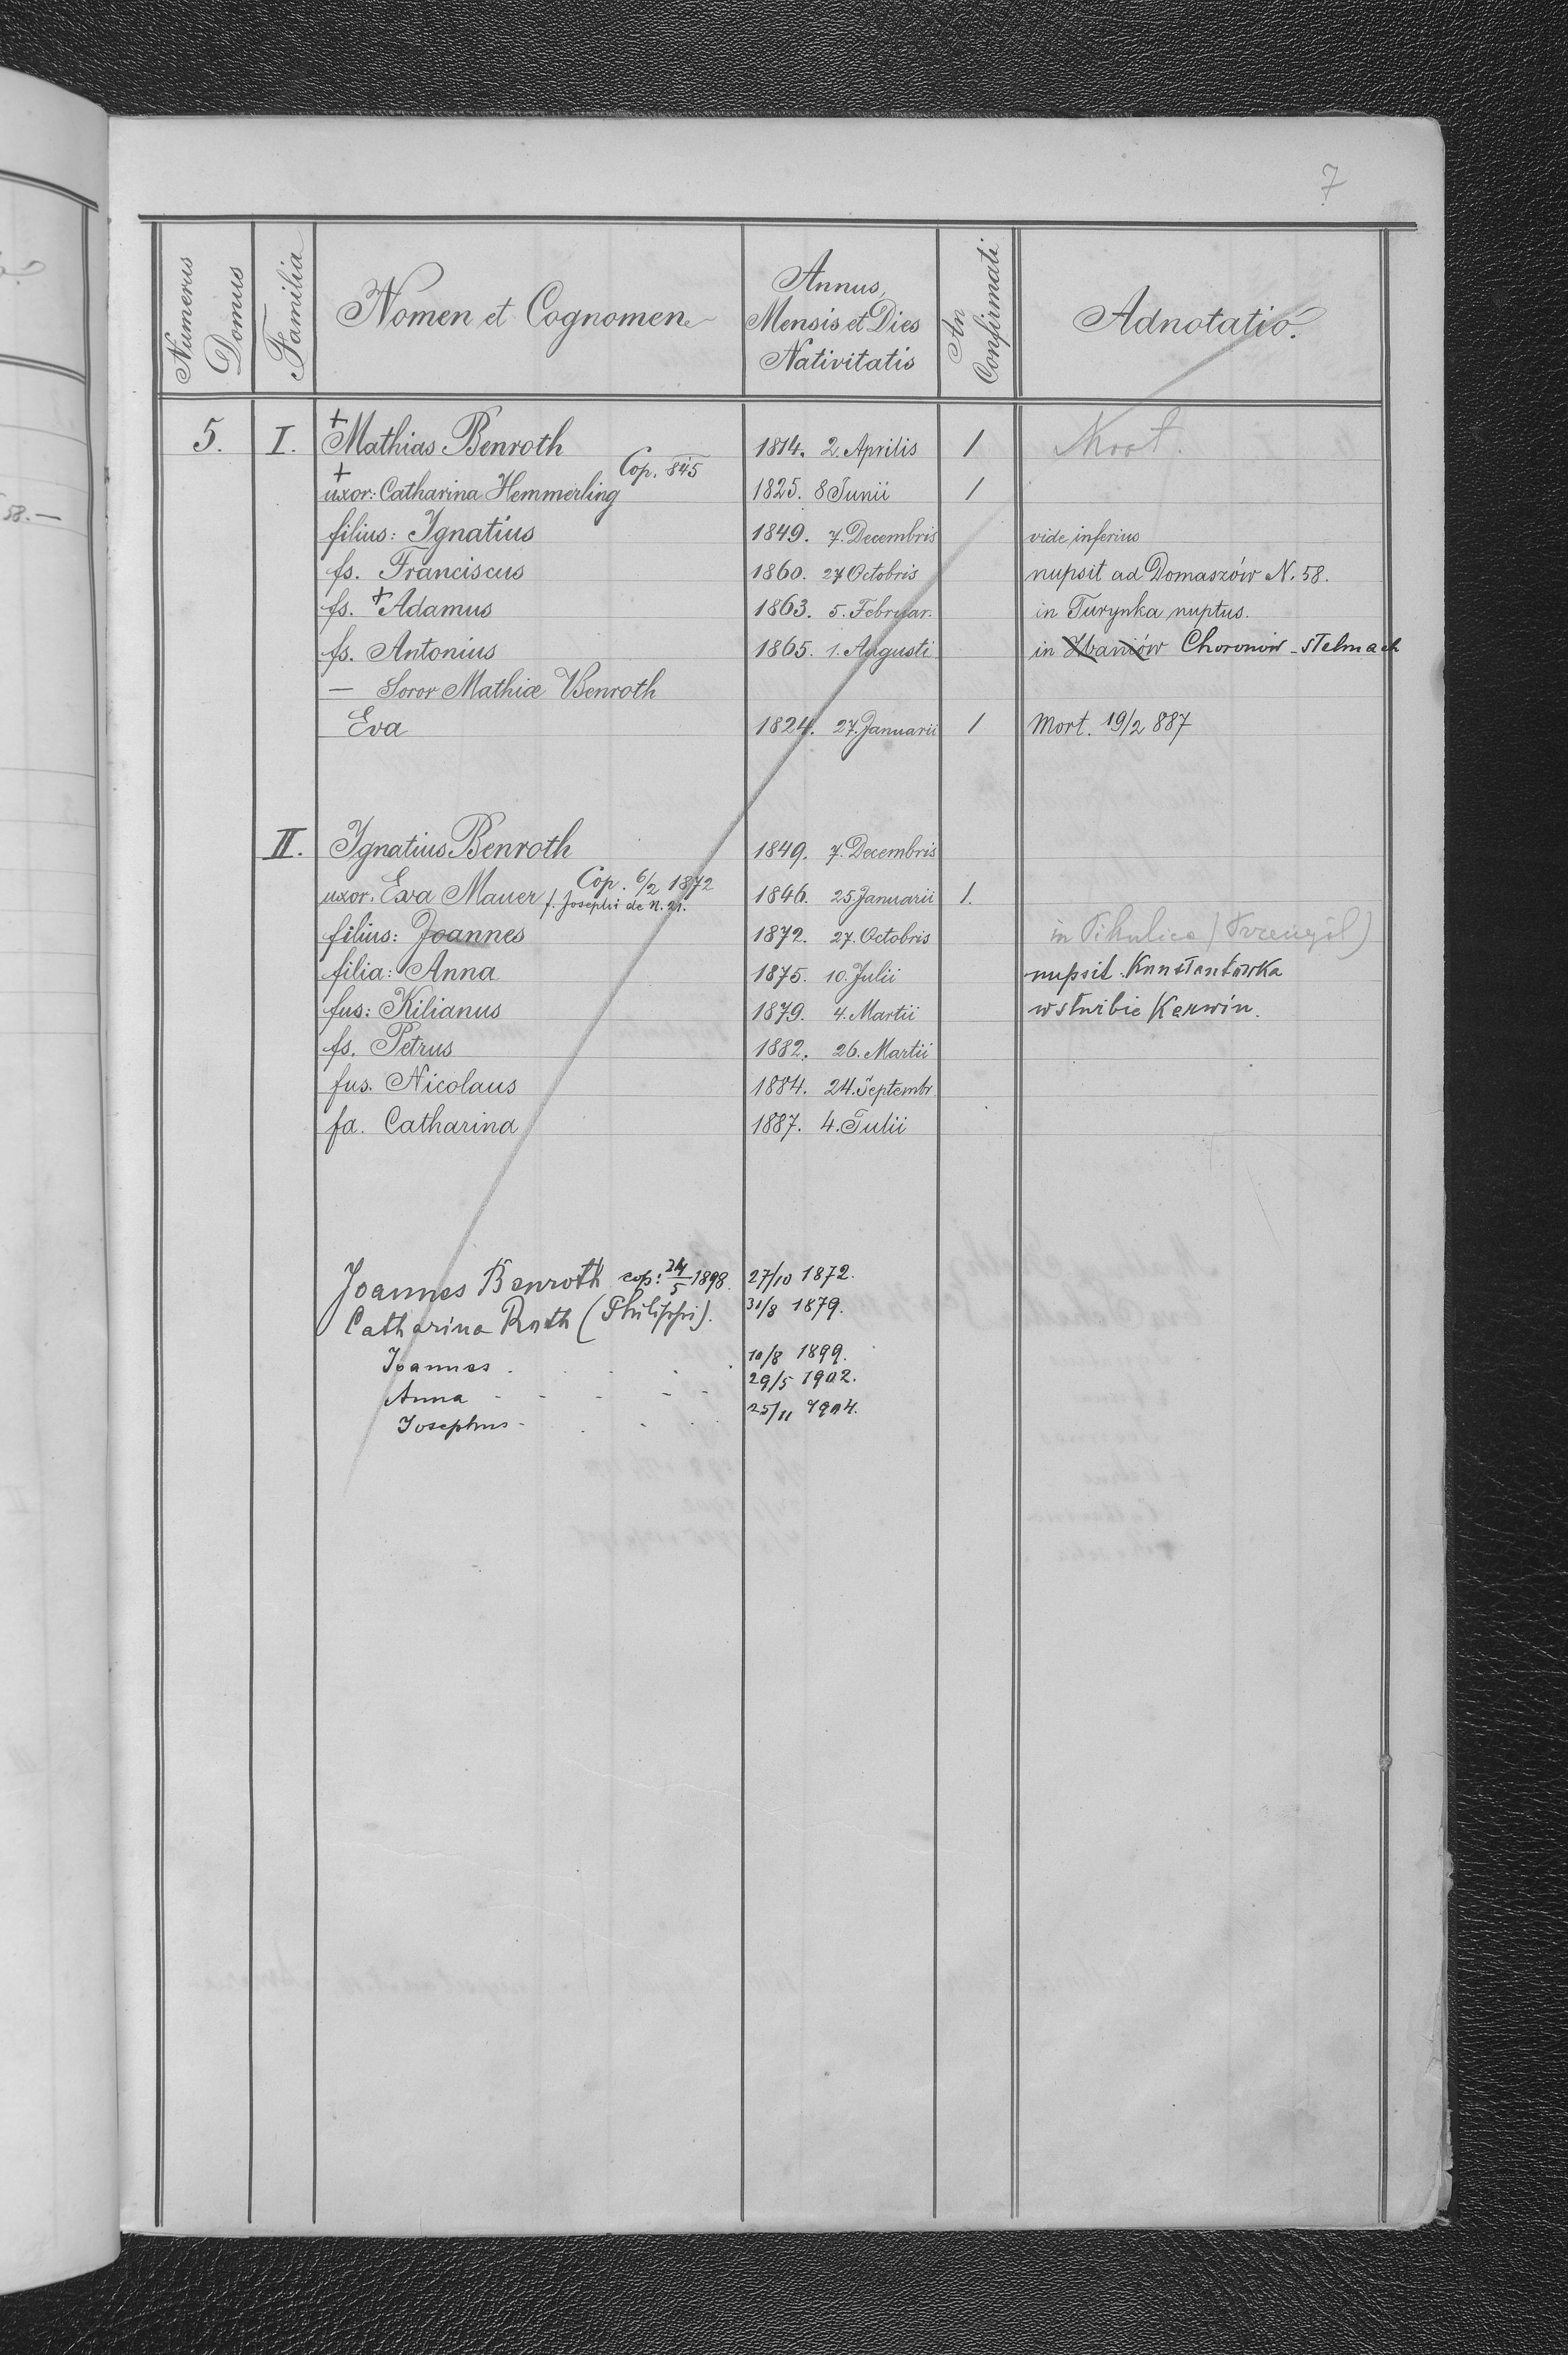 7
Numerus Domus
Familia
Nomen et Cognomen
Annus, Mensis et Dies Nativitatis
An Confirmati
Adnotatio.
5. I. + Mathias Benroth 1814. 2. Aprilis 1 Mort.
Cop. 845
+ uxor: Catharina Hemmerling 1825. 8 Junii 1
filius: Ignatius 1849. 7. Decembris vide inferius
fs. Franciscus 1860. 27 Octobris nupsit ad Domaszów N. 58.
fs. + Adamus 1863. 5. Februar. in Turynka nuptus.
fs. Antonius 1865. 1. Augusti in Choronów - stelmach
— Soror Mathiæ Benroth
Eva 1824. 27. Januarii 1 Mort. 19/2 887
II. Ignatius Benroth 1849. 7. Decembris
Cop. 6/2 1872
uxor. Eva Mauer f. Josephi de N. 21. 1846. 25 Januarii 1.
filius: Joannes 1872. 27. Octobris in
filia: Anna 1875. 10. Julii nupsit. Konstantówka
fus: Kilianus 1879. 4. Martii w służbie Karwin.
fs. Petrus 1882. 26. Martii
fus. Nicolaus 1884. 24. Septembr
fa. Catharina 1887. 4. Julii
Joannes Benroth cop: 24/5 1898. 27/10 1872.
Catharina Roth (Philippi). 31/8 1879.
Joannes 10/8 1899.
Anna 29/5 1902.
Josephus 25/11 1904.
58. —